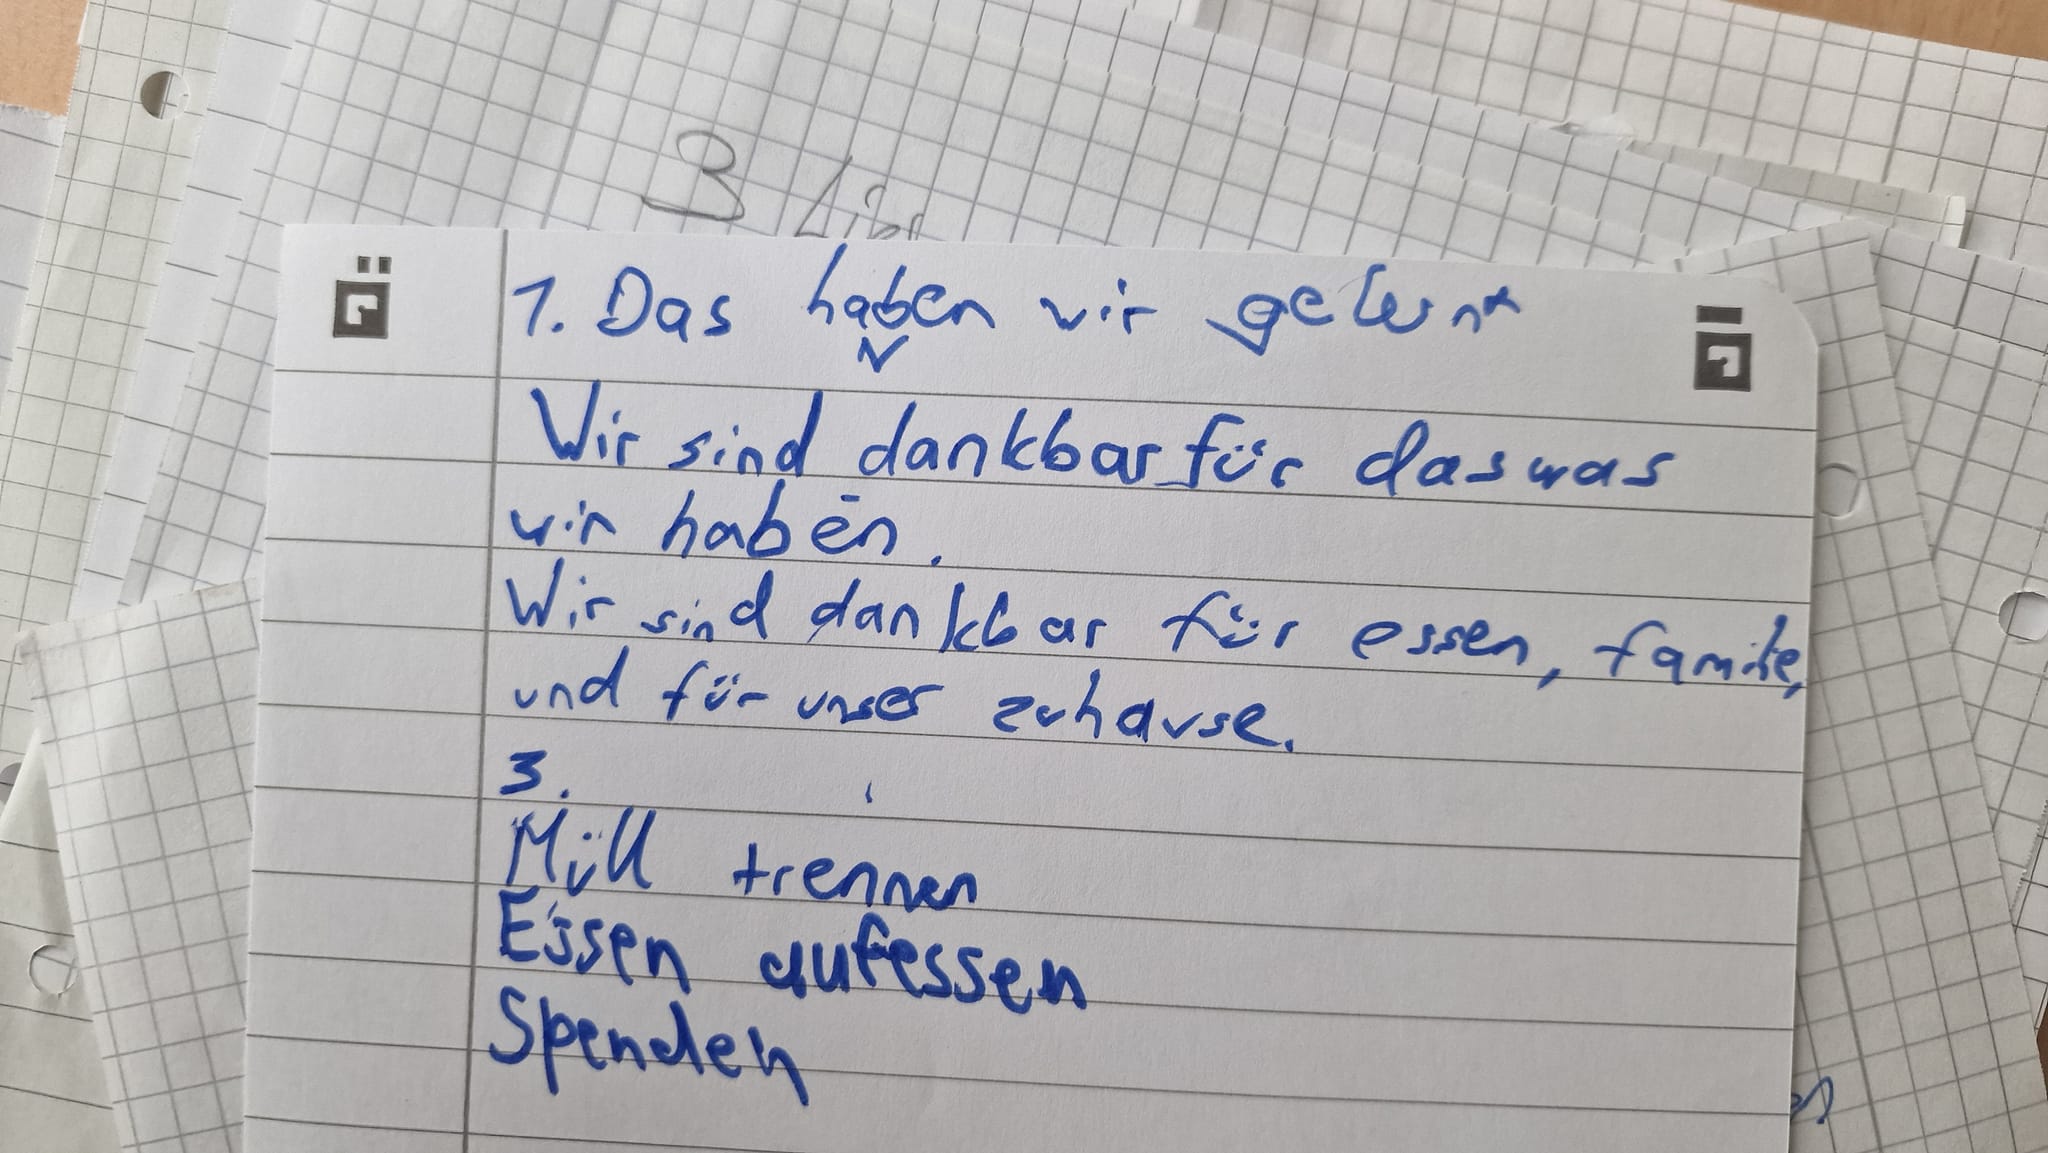 3
1. Das haben wir gelernt
Wir sind dankbar für das was
wir haben.
Wir sind dankbar für essen, familie,
und für unser zuhause.
3.
Müll trennen
Essen aufessen
Spenden